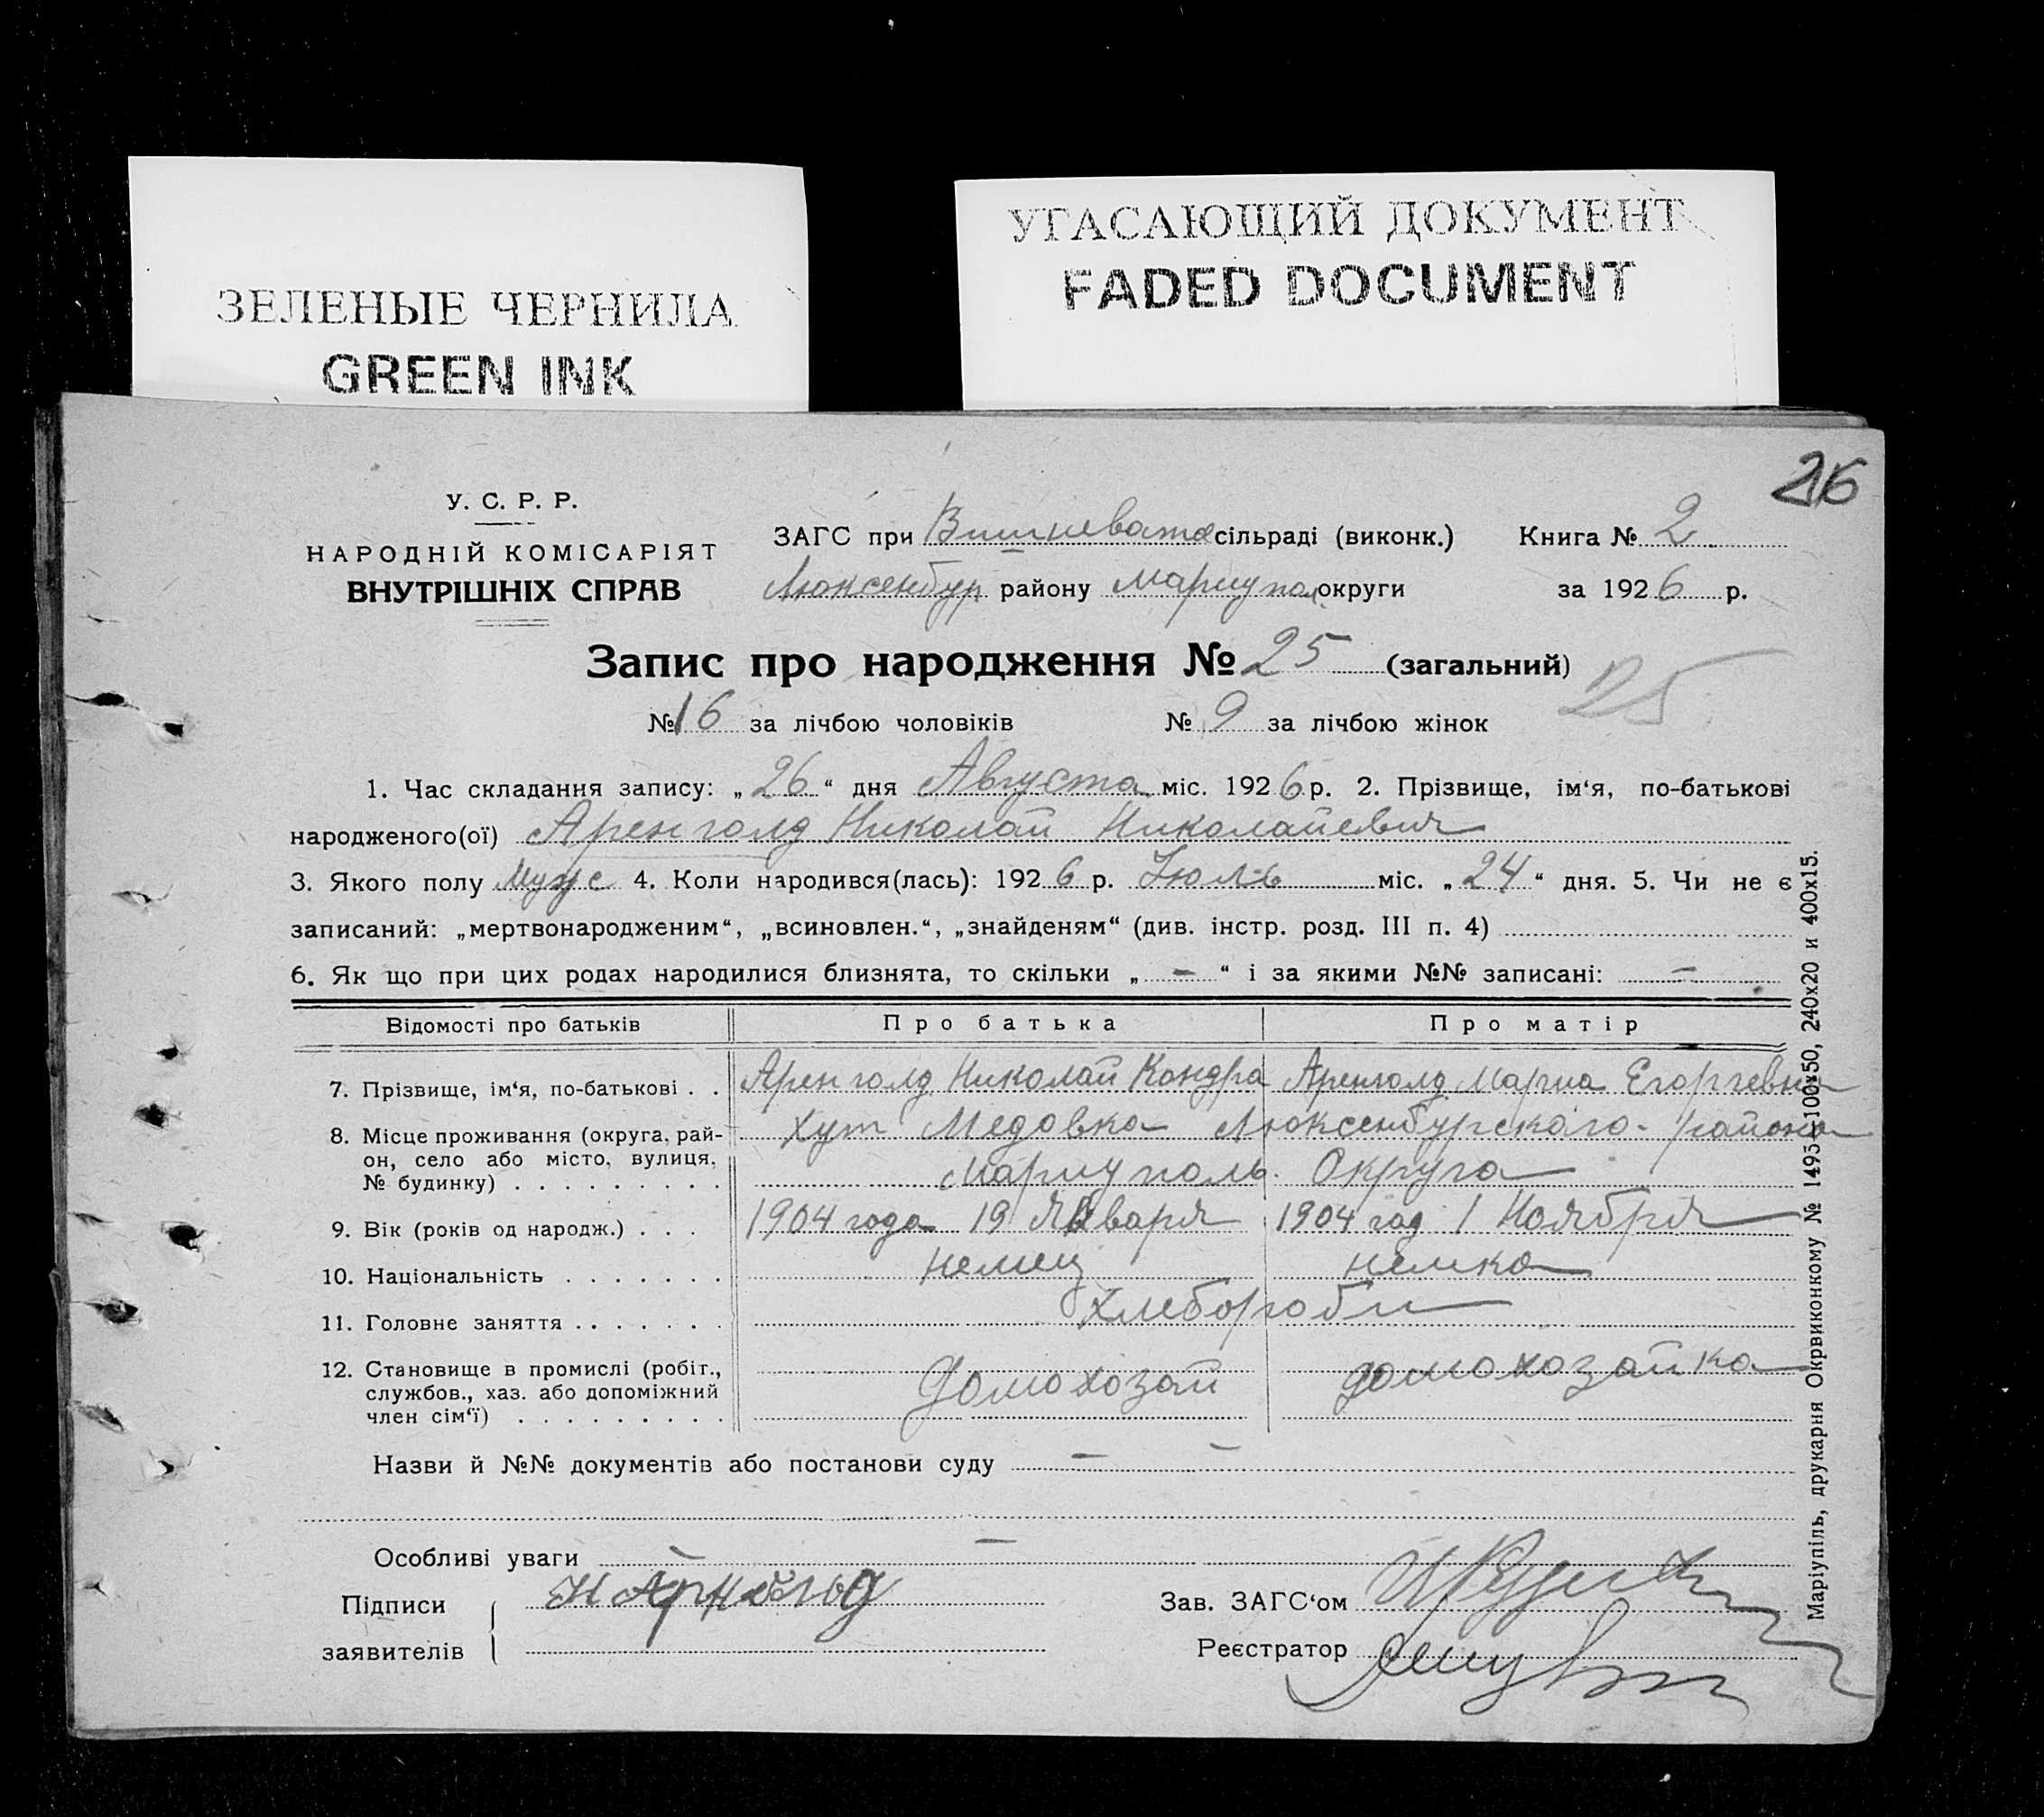 ЗЕЛЕНЫЕ ЧЕРНИЛА
GREEN INK
УГАСАЮЩИЙ ДОКУМЕНТ
FADED DOCUMENT
26
У. С. Р. Р.
НАРОДНІЙ КОМІСАРІЯТ
ВНУТРІШНІХ СПРАВ
ЗАГС при Вишневата сільраді (виконк.) Книга № 2
Люксенбур району Мариупол округи за 1926 р.
Запис про народження № 25 (загальний) 25
№ 16 за лічбою чоловіків № 9 за лічбою жінок
1. Час складання запису: „26“ дня Августа міс. 1926 р. 2. Прізвище, ім‘я, по-батькові
народженого(ої) Аренголд Николай Николайевич
3. Якого полу Муж с 4. Коли народився(лась): 1926 р. Июль міс. „24“ дня. 5. Чи не є
записаний: „мертвонародженим“, „всиновлен.“, „знайденям“ (див. інстр. розд. III п. 4)
6. Як що при цих родах народилися близнята, то скільки „ – “ і за якими №№ записані: –
Відомості про батьків Про батька Про матір
7. Прізвище, ім‘я, по-батькові . . Аренголд Николай Кондра Аренголд Мариа Егоргевна
8. Місце проживання (округа, рай-
он, село або місто, вулиця,
№ будинку) . . . . . . . . .
Хут Медовка Люксенбурскаго района
Мариуполь. Округа
9. Вік (років од народж.) . . . 1904 года 19 Января 1904 год 1 Ноября
10. Національність . . . . . . . немец немка
11. Головне заняття . . . . . . . хлебороби
12. Становище в промислі (робіт.,
службов., хаз. або допоміжний
член сім‘ї) . . . . . . . . .
Домохозай домохозайка
Назви й №№ документів або постанови суду – –
Особливі уваги – –
Підписи
заявителів
Н Арнголд
Зав. ЗАГС‘ом
Реєстратор
Маріупіль, друкарня Окрвиконкому № 1495—100х50, 240х20 и 400х15.